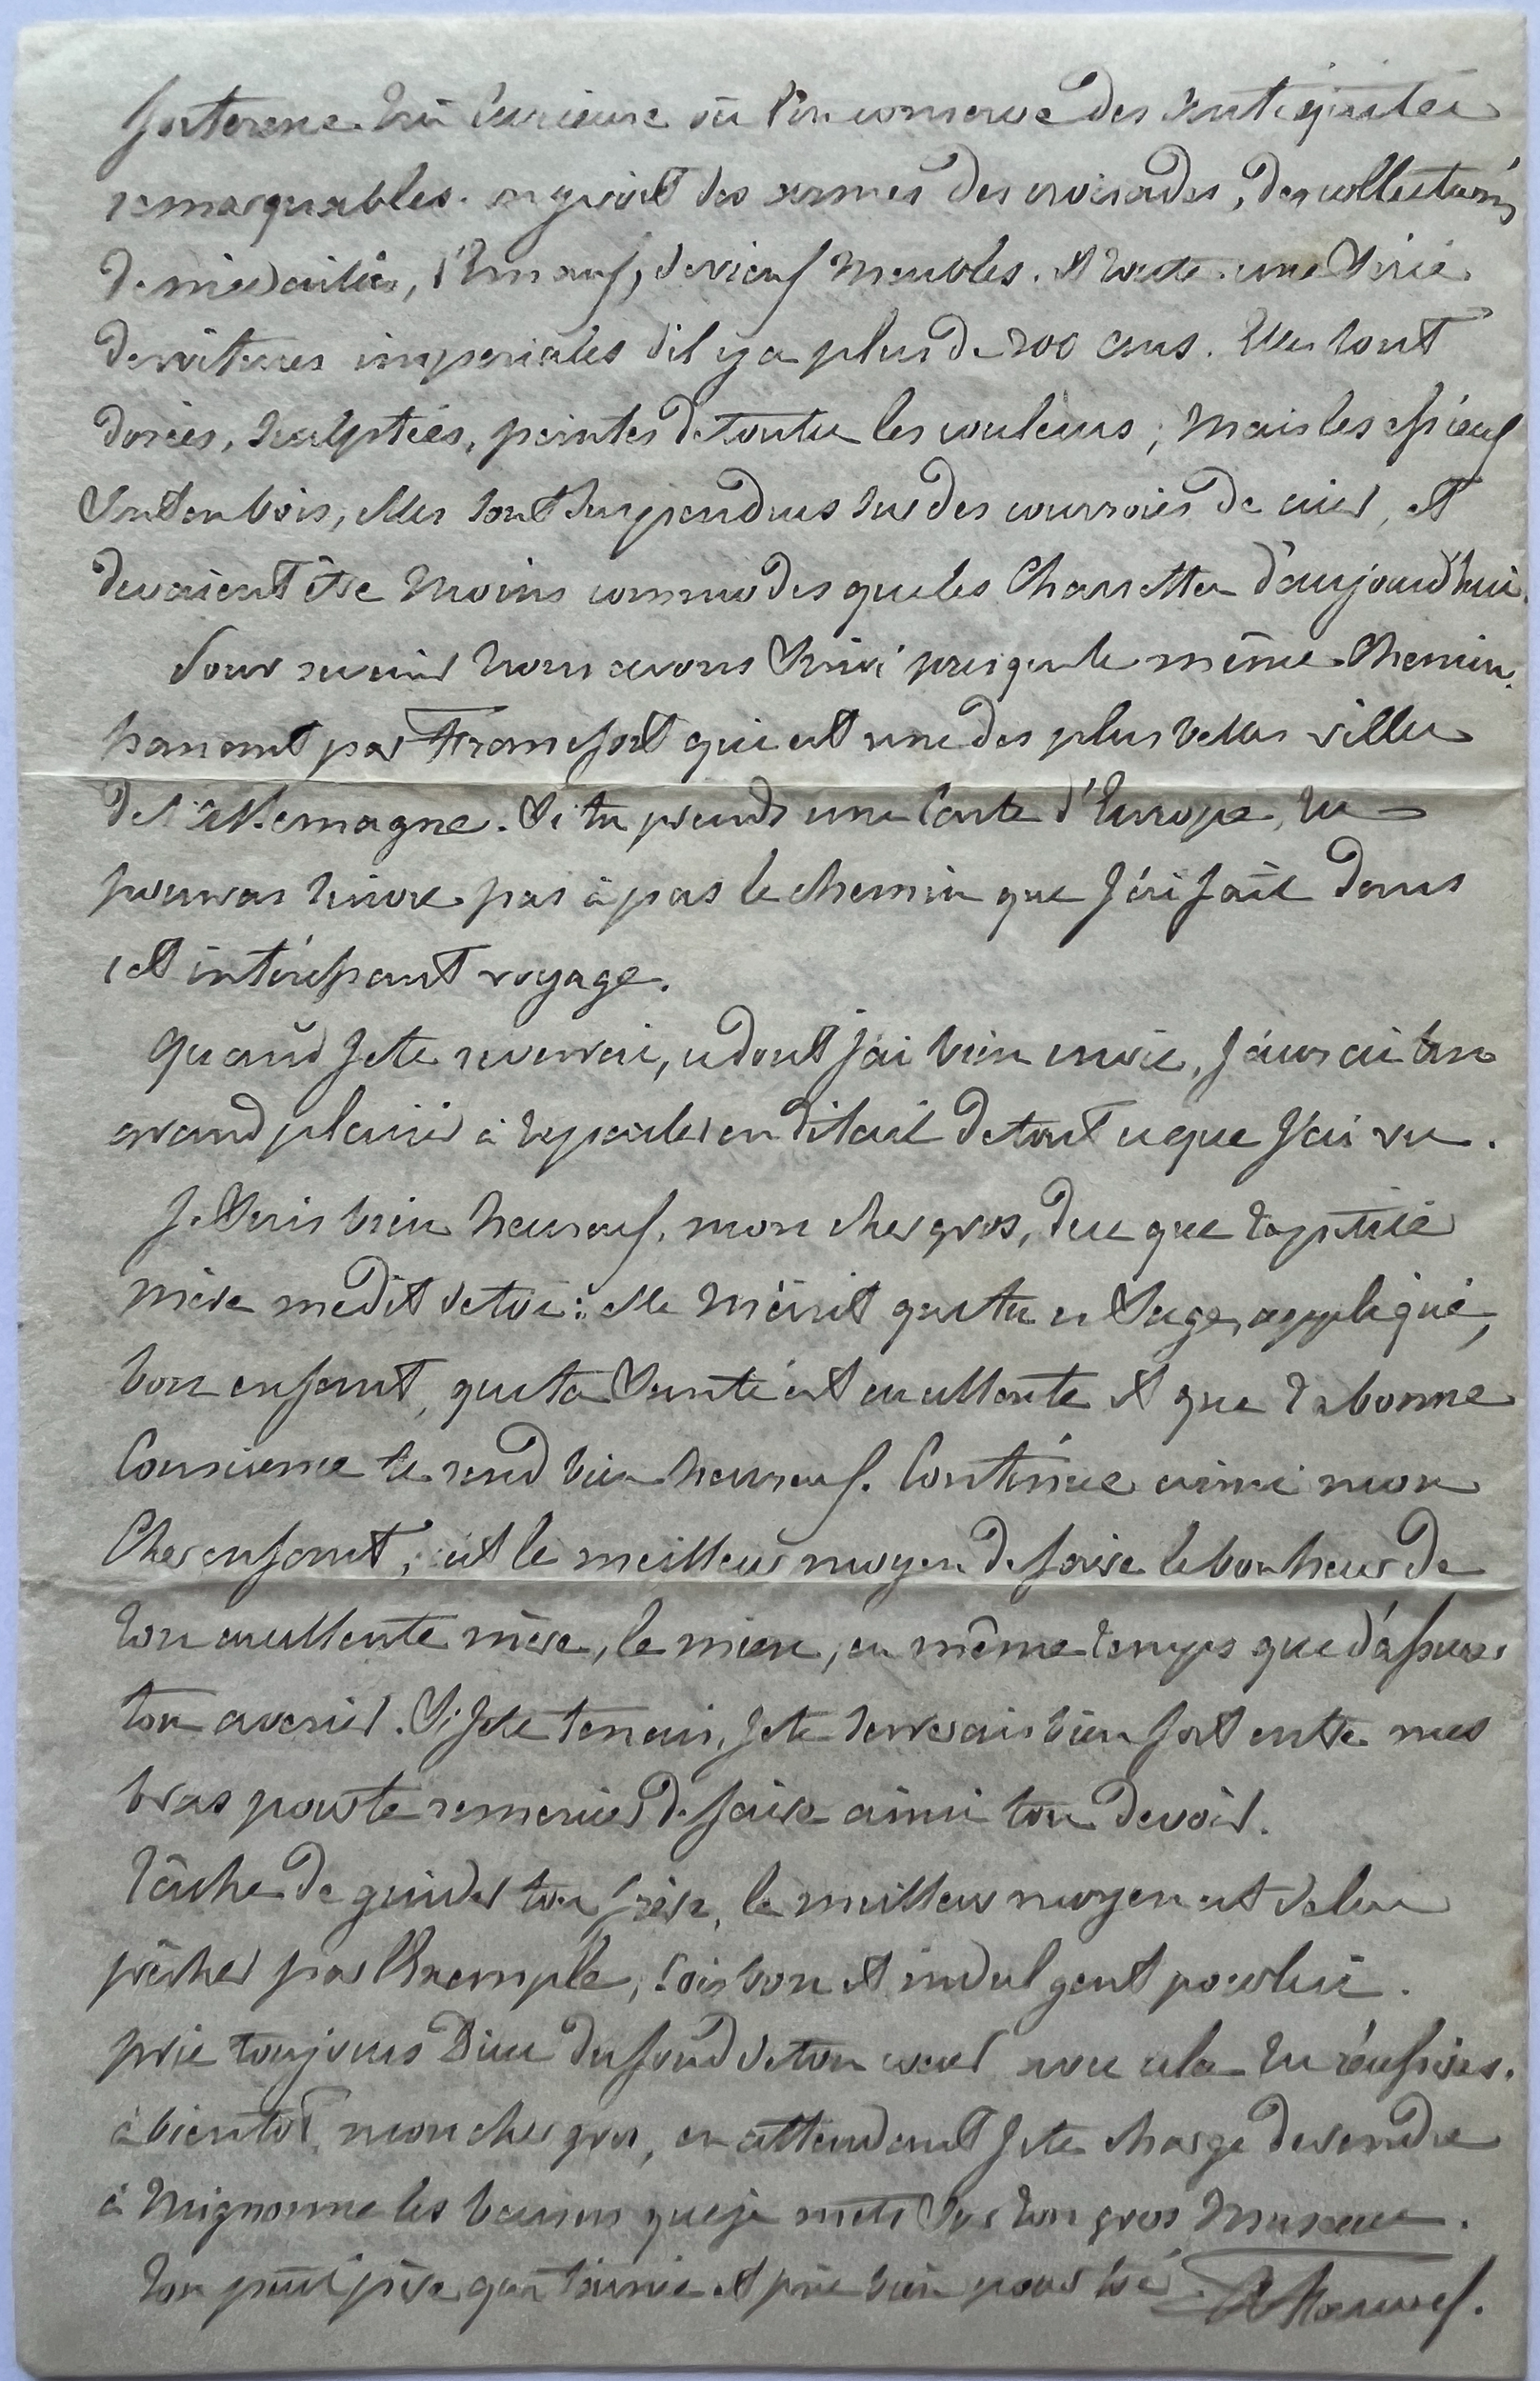 forteresse très curieuse où l'on conserve des antiquités
remarquables. on y voit des armes des croisades, des collections
de médailles, d'émaux, de vieux meubles. et toute une série
de voitures imperiales d'il y a plus de 200 ans. Elles sont
dorées, sculptées, peintes de toutes les couleurs; mais les essieux
sont en bois, elles sont suspendues sur des courroies de cuir, et
devaient être moins commodes que les charrettes d'aujourd'hui.
Pour revenir nous avons suivi presque le même chemin.
passant par Francfort qui est une des plus belles villes
de l'allemagne. Si tu prends une carte d'Europe, tu
pourras suivre pas à pas le chemin que j'ai fait dans
cet intéressant voyage.
Quand je te reverrai, ce dont j'ai bien envie, j'aurai un
grand plaisir à te parler en détail de tout ce que j'ai vu.
Je suis bien heureux, mon cher gros, de ce que ta petite
mère me dit de toi: elle m'écrit que tu es sage, appliqué,
bon enfant, que ta santé est excellente et que ta bonne
conscience te rend bien heureux. Continue ainsi mon
cher enfant, c'est le meilleur moyen de faire le bonheur de
ton excellente mère, le mien, en même temps que d'assurer
ton avenir. Si je te tenais, je te serrerais bien fort entre mes
bras pour te remercier de faire ainsi ton devoir.
Tâche de guider ton frère, le meilleur moyen est de lui
prêcher par l'Exemple, sois bon et indulgent pour lui.
prie toujours Dieu du fond de ton coeur avec cela tu réussiras.
à bientôt, mon cher gros, en attendant je te charge de rendre
à Mignonne les baisers que je mets sur ton gros museau.
Ton petit père qui t'aime et prie bien pour toi